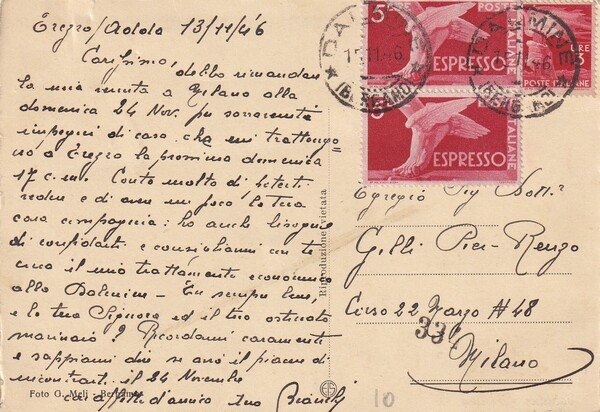 Trezzo/Adda 13/11/46
Carissimo, debbo rimandare
la mia venuta a Milano alla
domenica 24 Nov. per sovvenuti
impegni di casa che mi trattengo=
no a Trezzo la prossima domenica
17 c.m. Conto molto di poterti
vedere e di aver un poco la tua
cara compagnia: ho anche bisogno
di confidarti e consigliarmi con te
circa il mio trattamento economico
alla Dalmine - Tu sempre bene,
e la tua Signora ed il tuo
marinaio? Ricordami caramente
e sappiami dire se avrò il piacere di
incontrarti il 24 Novembre
tuo Bianchi
Foto G. Meli - Bergamo
Riproduzione vietata
5
POSTE ITALIANE
ESPRESSO
POSTE ITALIANE
ESPRESSO
LIRE 3
POSTE ITALIANE
DALMINE
(BERGAMO)
DALMINE
(BERGAMO)
Egregio Sig Dott.
Gilli Pier-Renzo
Corso 22 Marzo # 48
33
Milano
10